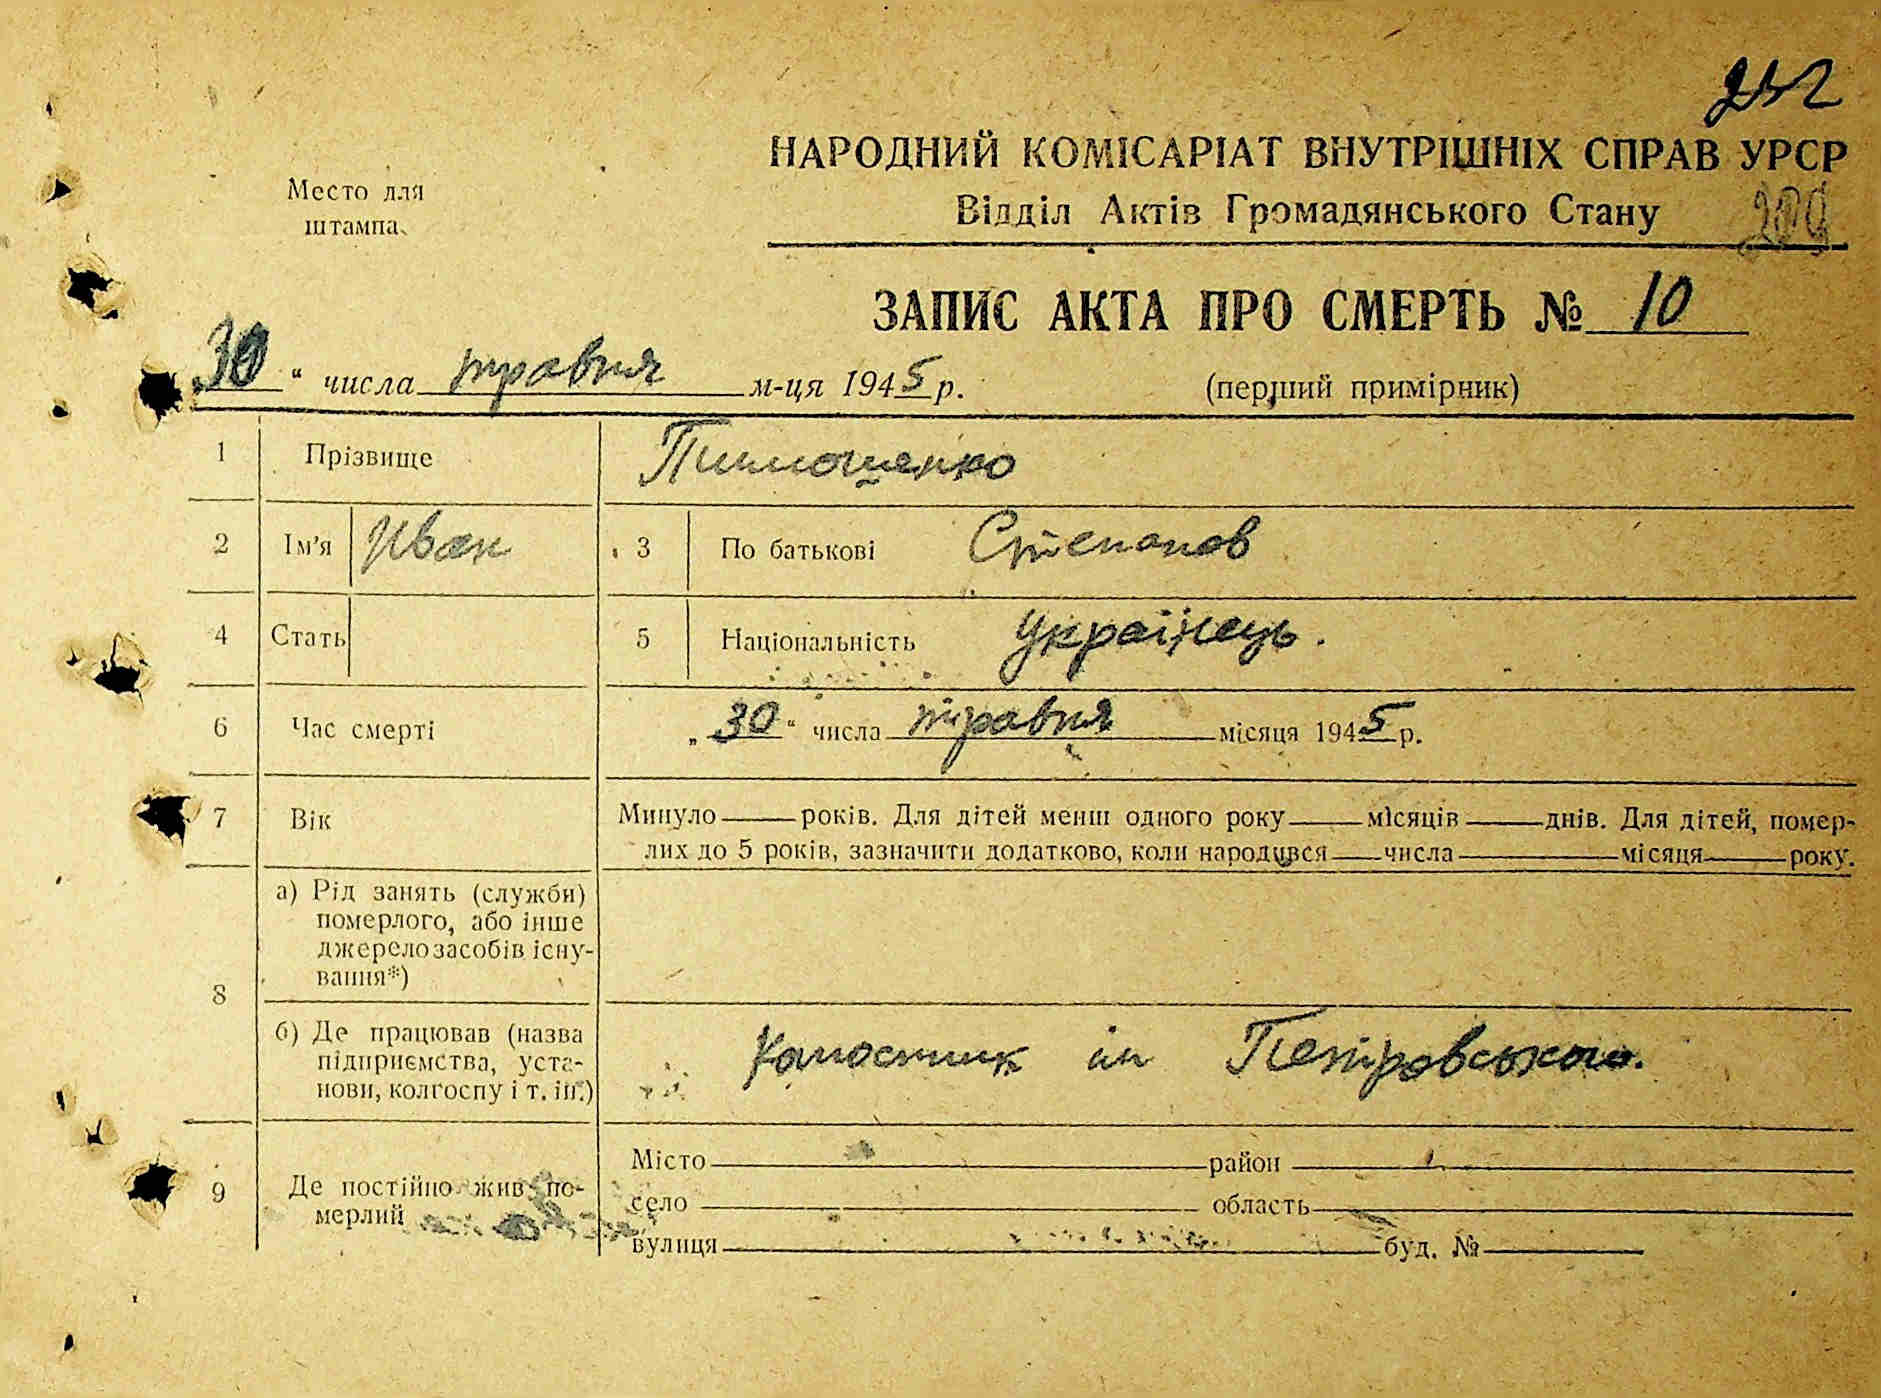 252
НАРОДНИЙ КОМІСАРІАТ ВНУТРІШНІХ СПРАВ УРСР
Место для
штампа.
Відділ Актів Громадянського Стану
209
ЗАПИС АКТА ПРО СМЕРТЬ № 10
„30“ числа травня м-ця 1945 р.
(перший примірник)
1 Прізвище Тимошенко
2 Ім'я Иван 3 По батькові Степанов
4 Стать 5 Національність Українець.
6 Час смерті „30“ числа травня місяця 1945 р.
7 Вік Минуло років. Для дітей менш одного року місяців днів. Для дітей, помер-
лих до 5 років, зазначити додатково, коли народився числа місяця року.
8 а) Рід занять (служби)
померлого, або інше
джерело засобів існу-
вання*)
б) Де працював (назва
підприємства, уста-
нови, колгоспу і т. ін.)
Колхосник ім Петровського.
9 Де постійно жив по-
мерлий
Місто район
село область
вулиця буд. №